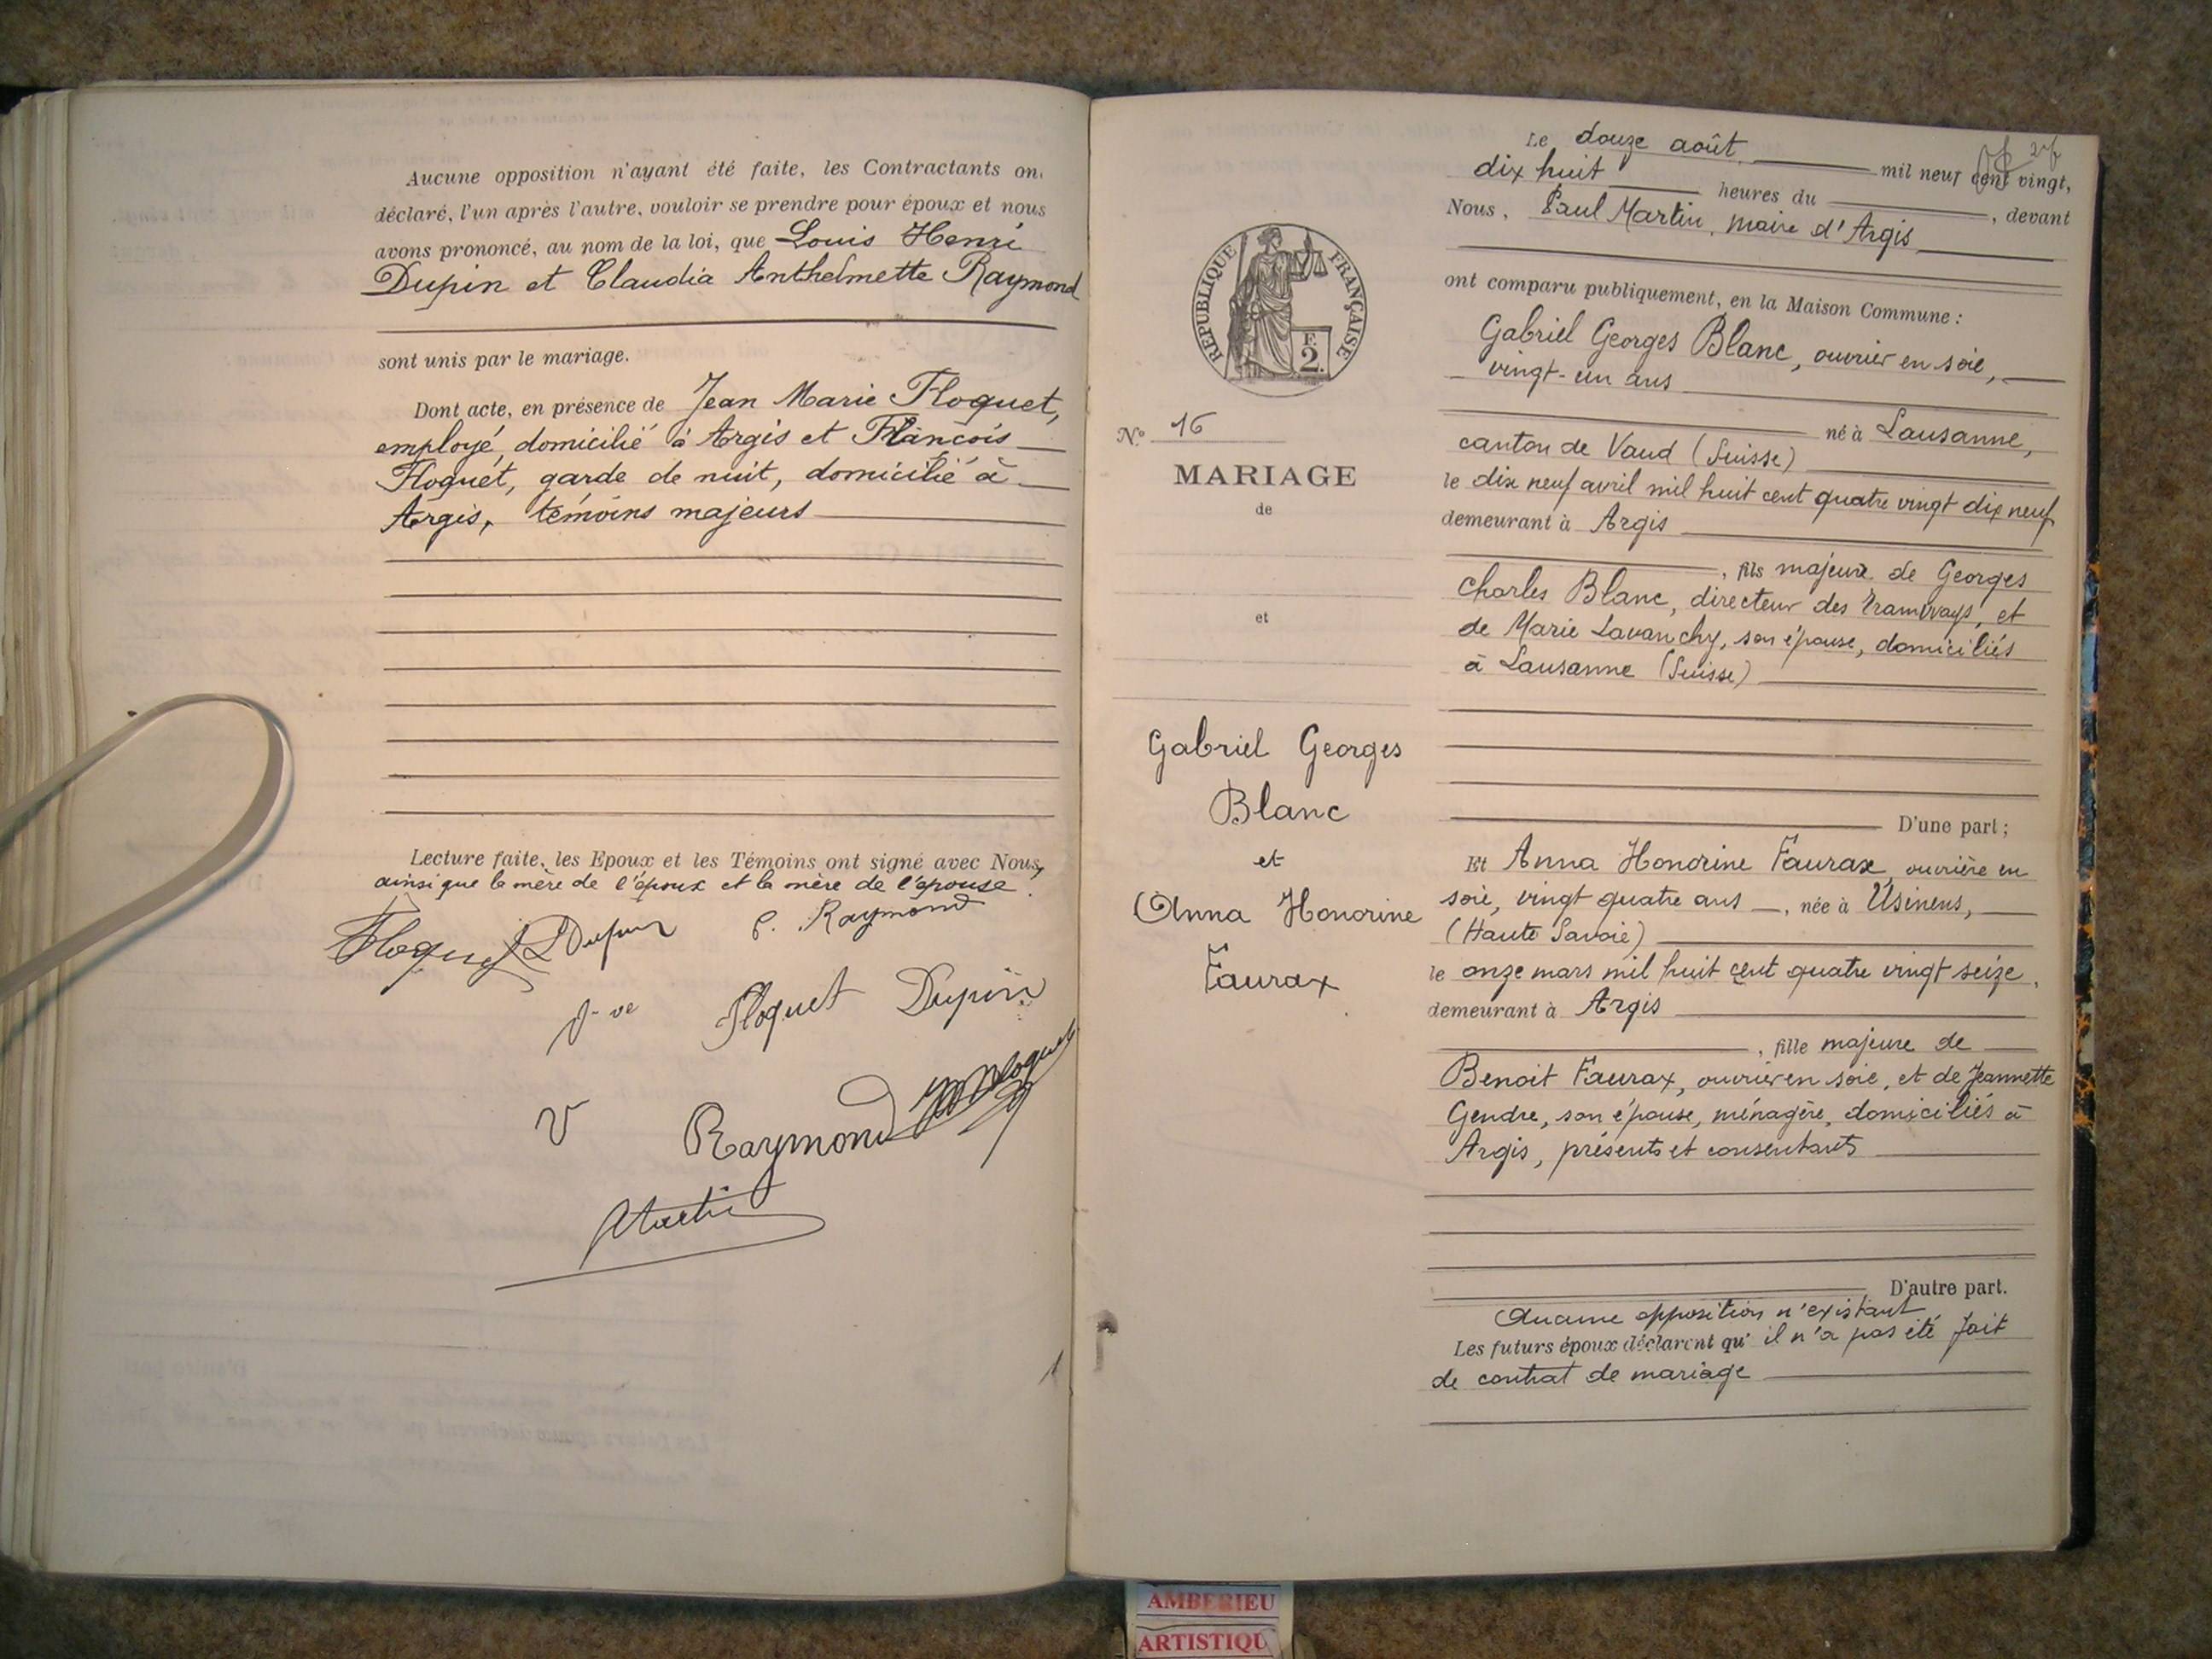 Aucune opposition n'ayant été faite, les Contractants on
déclaré, l'un après l'autre, vouloir se prendre pour époux et nous
avons prononcé, au nom de la loi, que Louis Henri
Dupin et Claudia Anthelmette Raymond
sont unis par le mariage.
Dont acte, en présence de Jean Marie Floquet,
employé, domicilié à Argis et François
Floquet, garde de nuit, domicilié à
Argis, témoins majeurs
Lecture faite, les Epoux et les Témoins ont signé avec Nous,
ainsi que la mère de l'époux et la mère de l'épouse.
Floquet L Dupin C. Raymond
Vve Floquet Dupin
V Raymond Floquet
Martin
Le douze août mil neuf cent vingt,
dix huit heures du , devant
Nous, Paul Martin, maire d'Argis
ont comparu publiquement, en la Maison Commune :
Gabriel Georges Blanc, ouvrier en soie,
vingt-un ans
né à Lausanne,
canton de Vaud (Suisse)
le dix neuf avril mil huit cent quatre vingt dix neuf
demeurant à Argis
, fils majeur de Georges
Charles Blanc, directeur des tramways, et
de Marie Lavanchy, son épouse, domiciliés
à Lausanne (Suisse)
D'une part ;
Et Anna Honorine Faurax, ouvrière en
soie, vingt quatre ans , née à Usinens,
(Haute Savoie)
le onze mars mil huit cent quatre vingt seize,
demeurant à Argis
, fille majeure de
Benoit Faurax, ouvrier en soie, et de Jeannette
Gendre, son épouse, ménagère, domiciliés à
Argis, présents et consentants
D'autre part.
Aucune opposition n'existant
Les futurs époux déclarent qu'il n'a pas été fait
de contrat de mariage
RÉPUBLIQUE FRANÇAISE
F.
2.
N° 16
MARIAGE
de
et
Gabriel Georges
Blanc
et
Anna Honorine
Faurax
AMBERIEU
ARTISTIQU